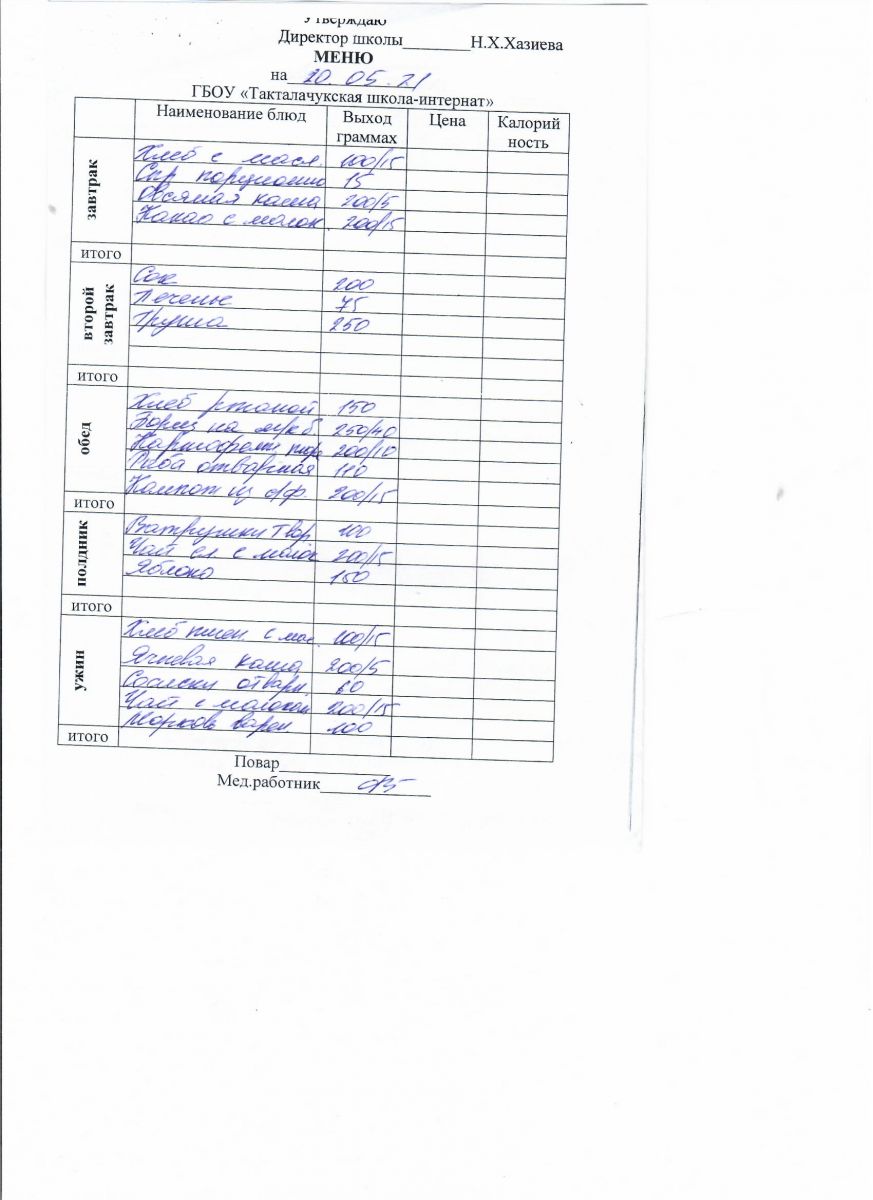 Утверждаю
Директор школы________Н.Х.Хазиева
МЕНЮ
на 20.05.21
ГБОУ «Такталачукская школа-интернат»
Наименование блюд Выход граммах Цена Калорий ность
завтрак
Хлеб с масл. 100/15
Сыр порционно 15
Овсяная каша 200/5
Какао с молок. 200/15
итого
второй завтрак
Сок 200
Печенье 75
Груша 250
итого
обед
Хлеб ржаной 150
Борщ на м/к б 250/40
Картофельн пюре 200/10
Рыба отварная 110
Компот из с/ф. 200/15
итого
полдник
Ватрушки твор 100
Чай сл. с молок 200/15
Яблоко 150
итого
ужин
Хлеб пшен. с мас. 100/15
Ячневая каша 200/5
Сосиски отварн. 60
Чай с молоком 200/15
Морковь варен. 100
итого
Повар____________
Мед.работник____________